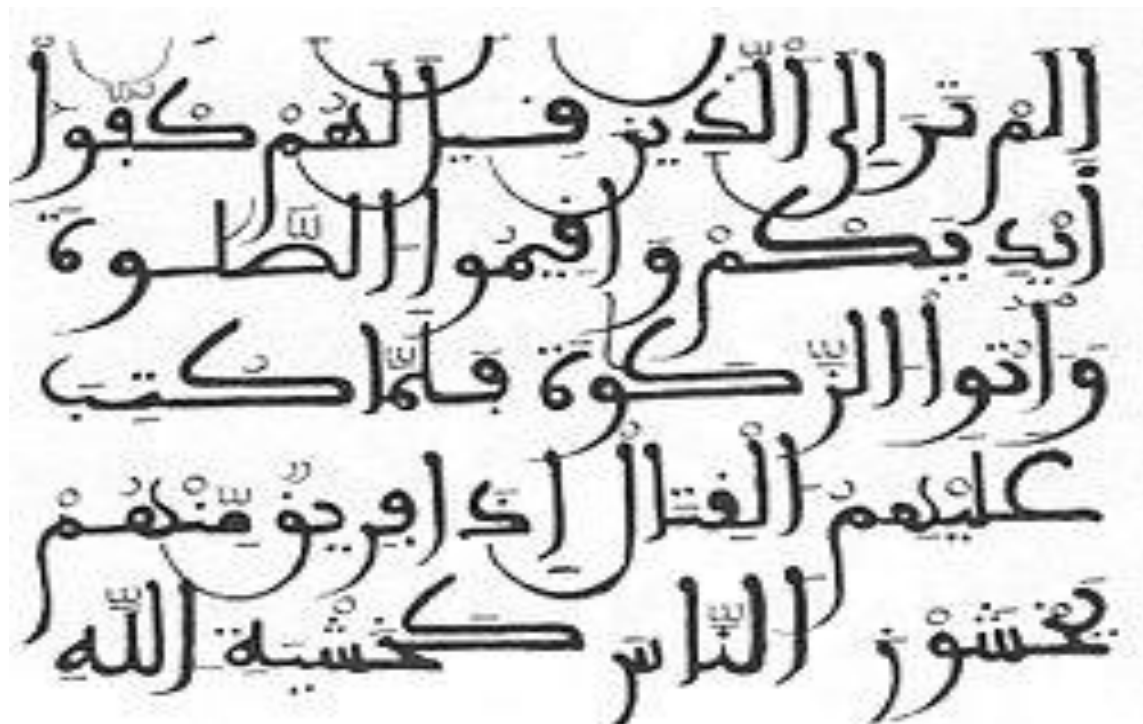 اَلَمْ تَرَ إِلَى اَلذِينَ قِيلَ لَهُمْ كُفُّوٓاْ
أَيْدِيَكُمْ وَأَقِيمُواْ اُلصَّلَوٰةَ
وَءَاتُواْ اُلزَّكَوٰةَ فَلَمَّا كُتِبَ
عَلَيْهِمُ اُلْقِتَالُ إِذَا فَرِيقٌ مِّنْهُمْ
يَخْشَوْنَ اَلنَّاسَ كَخَشْيَةِ اِللَّهِ